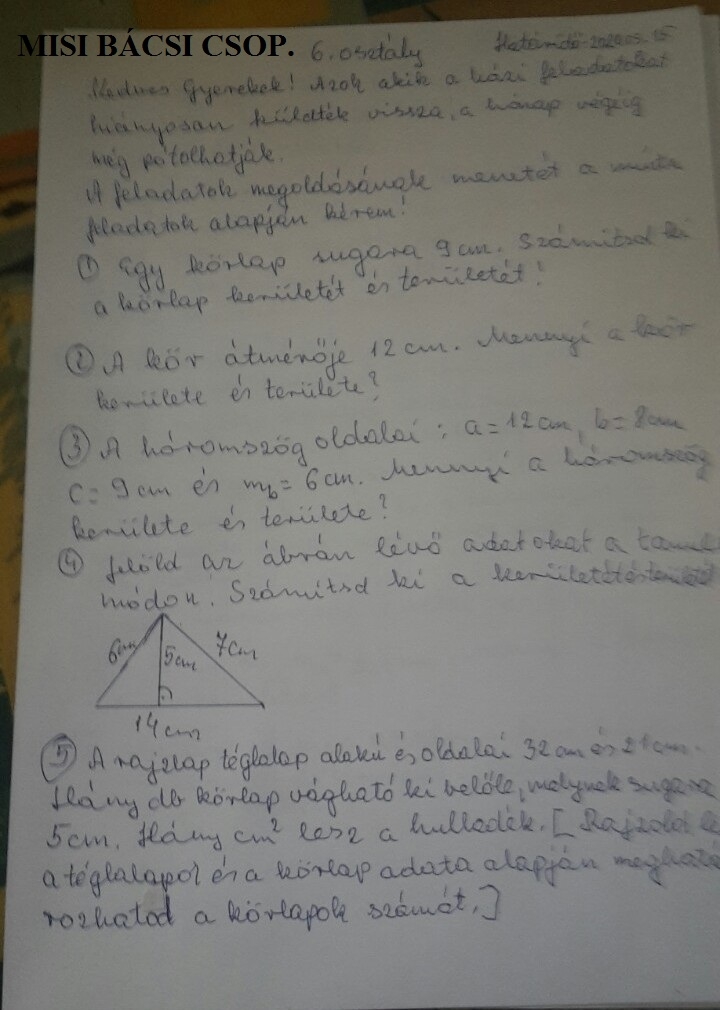 MISI BÁCSI CSOP. 6. osztály Határidő
Kedves Gyerekek! Azok akik a házi feladatokat
hiányosan küldték vissza, a hónap végéig
még pótolhatják.
A feladatok megoldásának menetét a minta
feladatok alapján kérem!
① Egy körlap sugara 9 cm. Számítsd ki
a körlap kerületét és területét!
② A kör átmérője 12 cm. Mennyi a kör
kerülete és területe?
③ A háromszög oldalai: a=12 cm, b=8 cm
c=9 cm és mb=6 cm. Mennyi a háromszög
kerülete és területe?
④ Jelöld az ábrán lévő adatokat a tanult
módon! Számítsd ki a kerületét és területét
6 cm 5 cm 7 cm
14 cm
⑤ A rajzlap téglalap alakú és oldalai 32 cm és 21 cm.
Hány db körlap vágható ki belőle, melynek sugara
5 cm. Hány cm² lesz a hulladék. [Rajzold le
a téglalapot és a körlap adata alapján meghatá
rozhatod a körlapok számát.]